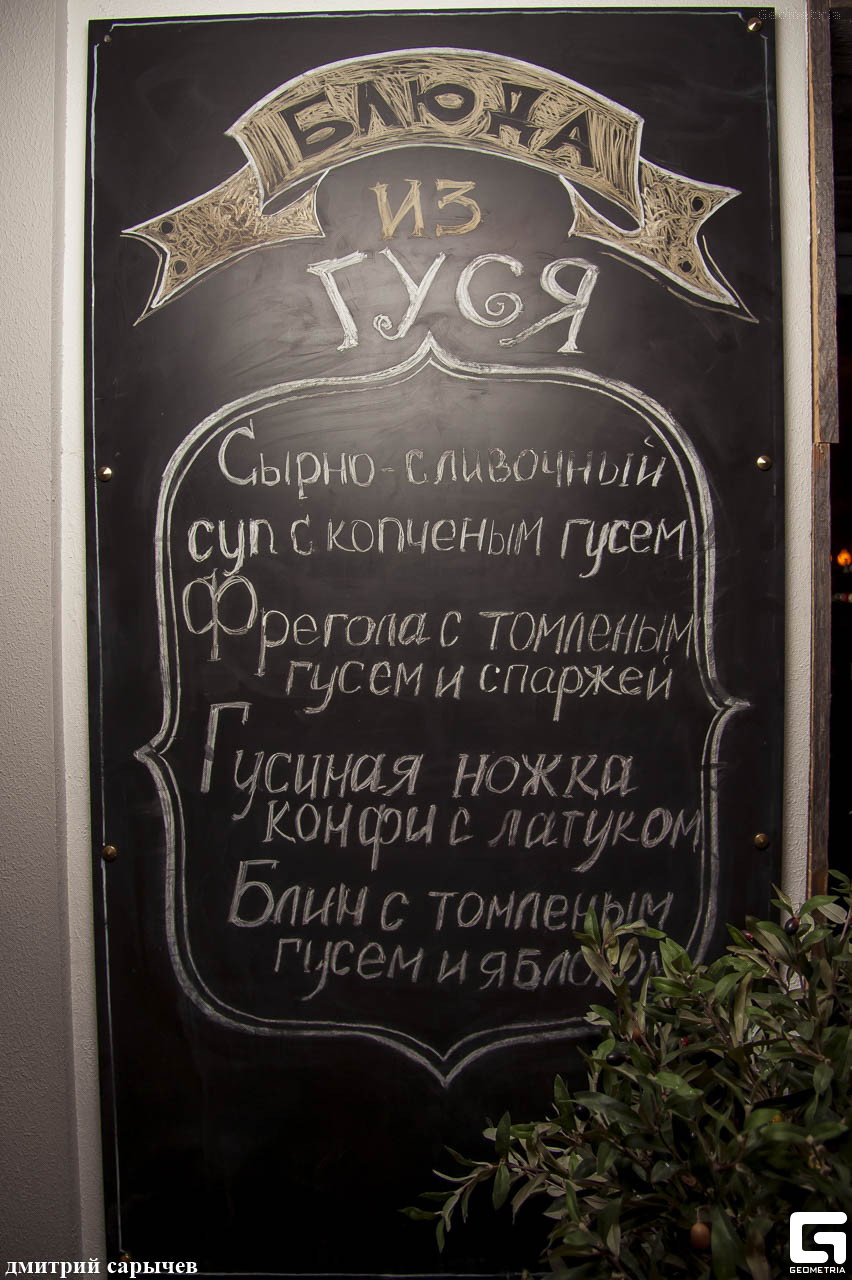 Geometria
БЛЮДА
ИЗ
ГУСЯ
Сырно-сливочный
суп с копченым гусем
Фрегола с томленым
гусем и спаржей
Гусиная ножка
конфи с латуком
Блин с томленым
гусем и яблоком
дмитрий сарычев
GEOMETRIA